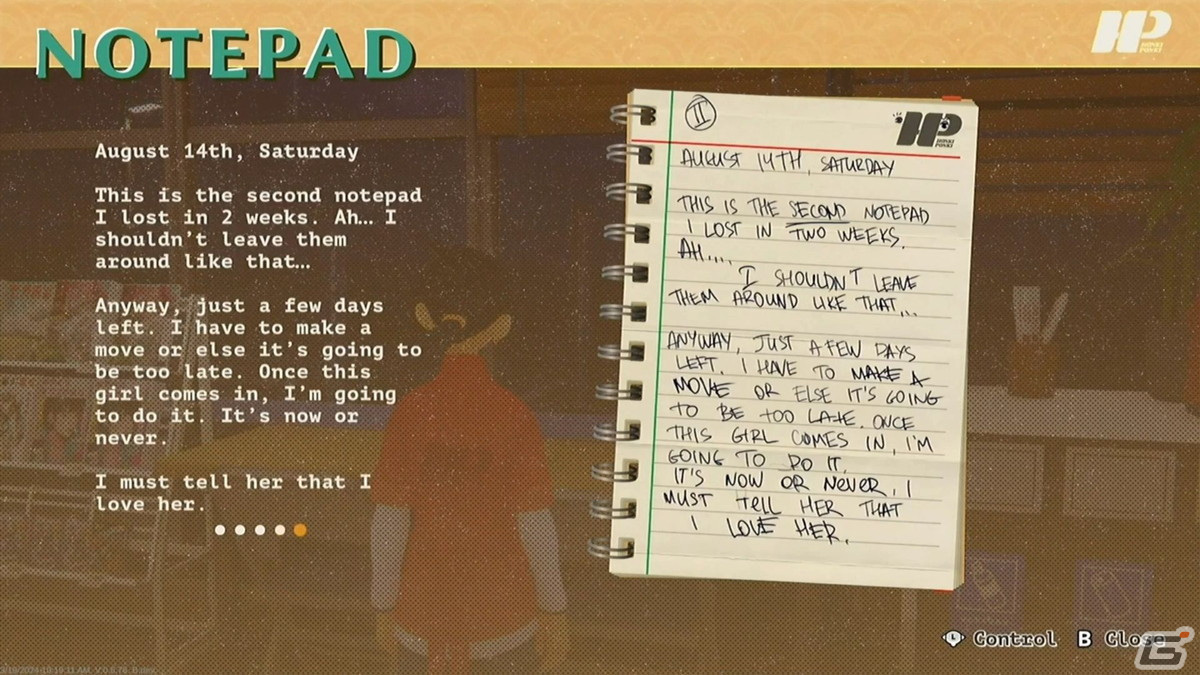 NOTEPAD
HP
HONKI
PONKI
August 14th, Saturday
This is the second notepad
I lost in 2 weeks. Ah… I
shouldn't leave them
around like that…
Anyway, just a few days
left. I have to make a
move or else it's going to
be too late. Once this
girl comes in, I'm going
to do it. It's now or
never.
I must tell her that I
love her.
II
HP
AUGUST 14TH, SATURDAY
THIS IS THE SECOND NOTEPAD
I LOST IN TWO WEEKS.
AH....
I SHOULDN'T LEAVE
THEM AROUND LIKE THAT...
ANYWAY, JUST A FEW DAYS
LEFT. I HAVE TO MAKE A
MOVE OR ELSE IT'S GOING
TO BE TOO LATE. ONCE
THIS GIRL COMES IN, I'M
GOING TO DO IT.
IT'S NOW OR NEVER. I
MUST TELL HER THAT
I LOVE HER.
Control B Close